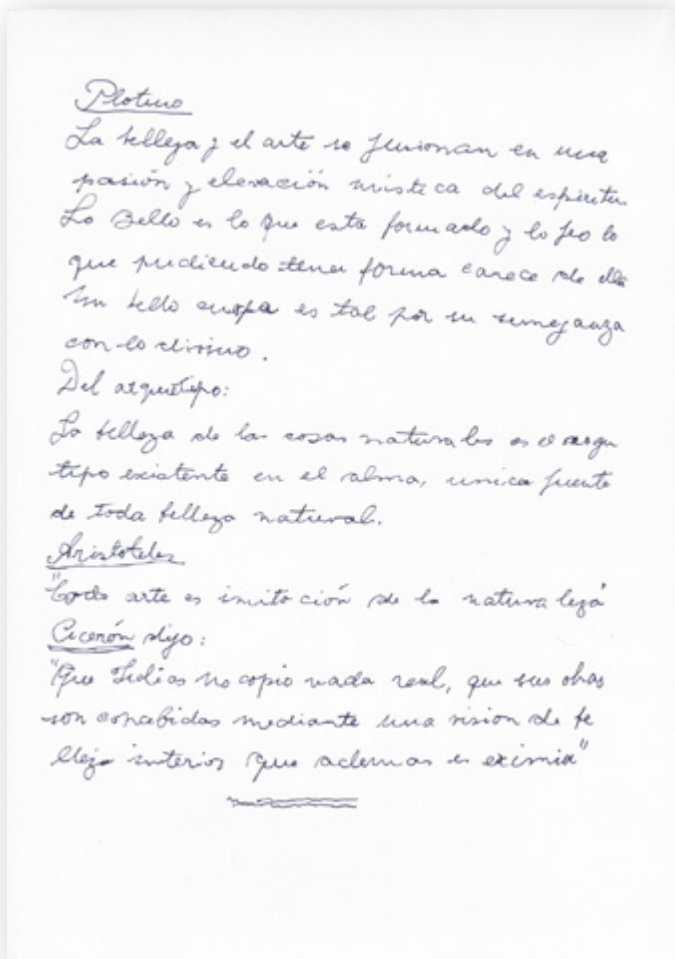 Plotino
La belleza y el arte se fusionan en una
pasión y elevación mistica del espiritu.
Lo Bello es lo que esta formado y lo feo lo
que pudiendo tener forma carece de ella
Un bello cuerpo es tal por su semejanza
con lo divino.
Del arquetipo:
La belleza de las cosas naturales es el arque
tipo existente en el alma, unica fuente
de toda belleza natural.
Aristoteles
"Todo arte es imitación de la naturaleza"
Cicerón dijo:
"Que Fidias no copio nada real, que sus obras
son concebidas mediante una vision de be
lleza interior que ademas es eximia"